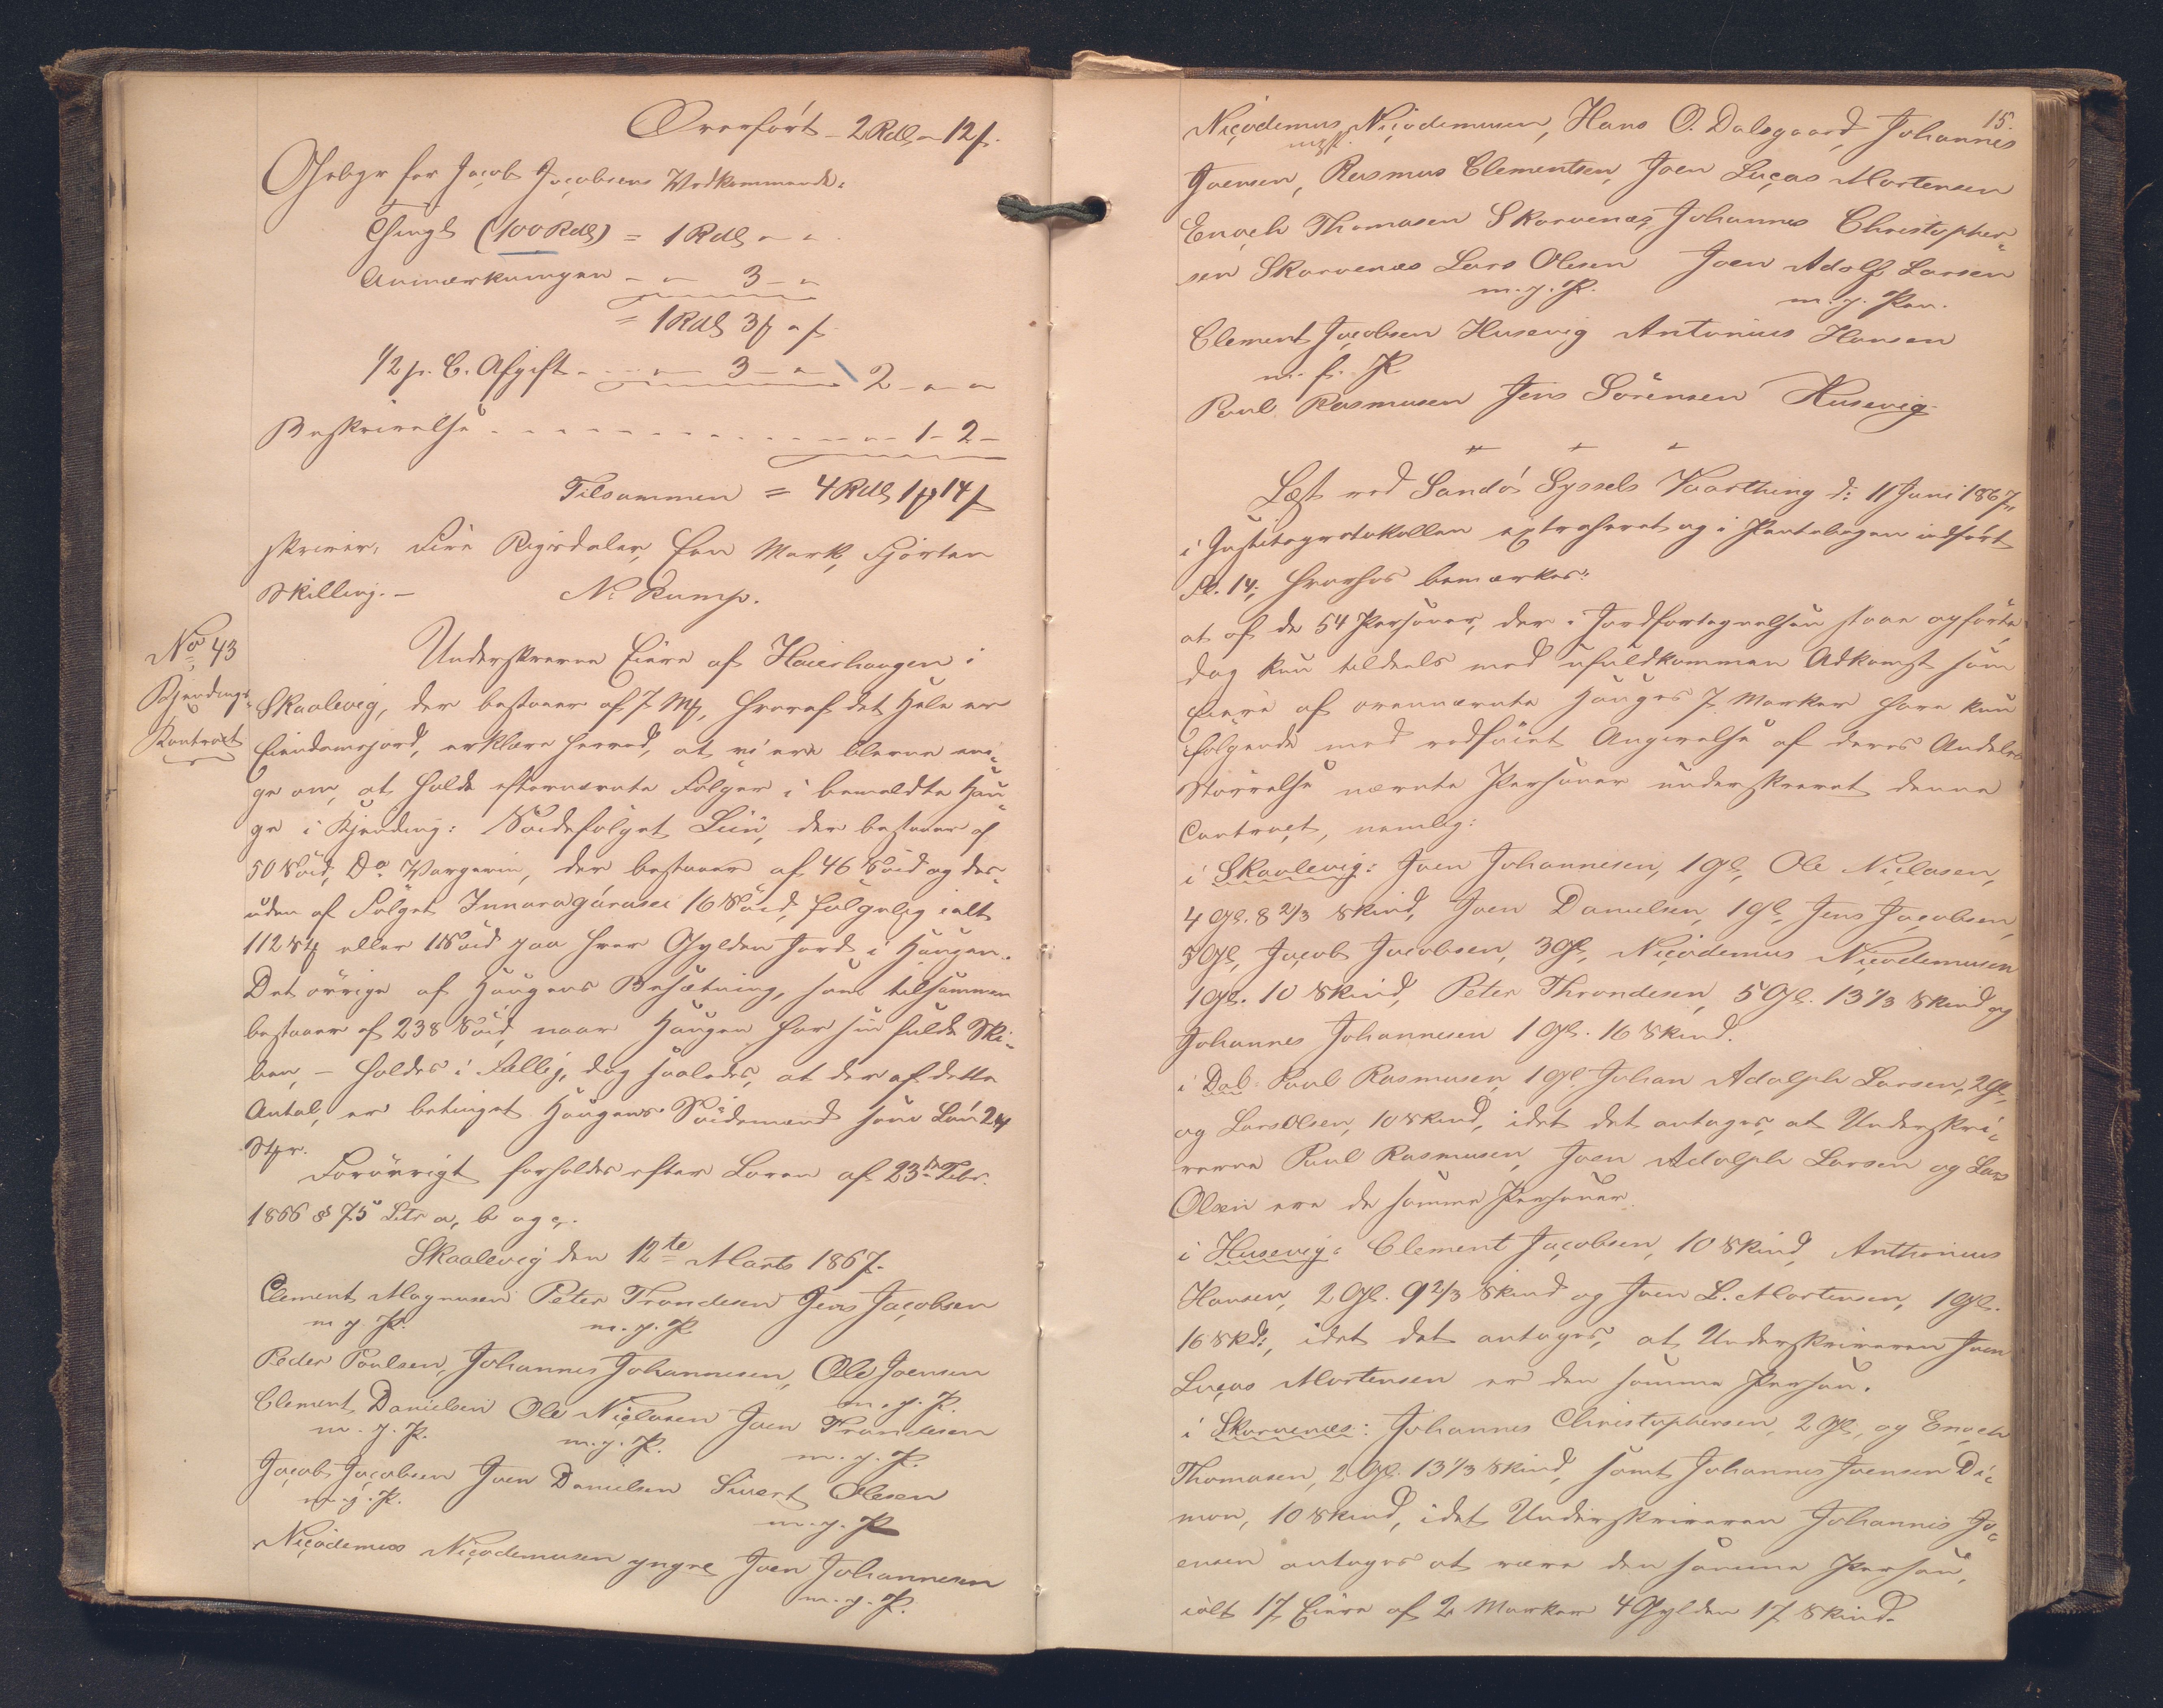 Overført – 2 Rdl – 12 s.
Gebyr for Jacob Jacobsens Vedkommende:
Thingl. (100 Rdl) = 1 Rdl – "
Anmærkningen – – 3 – "
= 1 Rdl 3 μ – s
1/2 p. C. Afgift – – 3 – " 2 – " – "
Beskrivelse – – – 1 – 2 –
Tilsammen = 4 Rdl 1 μ 14 s
skriver: Fire Rigsdaler, Een Mark, Fjorten
Skilling. – N. Rump.
No 43
Kjendings-
Kontract
Underskrevne Eiere af Haierhaugen i
Skaalevig, der bestaaer af 7 Mk, hvoraf det Hele er
Eiendomsjord, erklære herved, at vi ere blevne eni-
ge om, at holde efternævnte Følger i bemeldte Hau-
ge i Kjending: Soidefølget Liin, der bestaaer af
50 Soid, Do Vargerin, der bestaaer af 46 Soid og des-
uden af Følget Innaragarasei 16 Soid, følgelig ialt
112 St eller 1 Soid paa hver Gylden Jord i Haugen.
Det øvrige af Haugens Besætning, som tilsammen
bestaaer af 238 Soid, naar Haugen har sin fulde Ski-
ben, – holdes i Fællig, dog saaledes, at der af dette
Antal, er betinget Haugens Soidemænd som Løn 24
Stkr.
Forøvrigt forholdes efter Loven af 23de Febr.
1866 § 75 Litr a, b og c.
Skaalevig den 12te Marts 1867.
Clement Magnusen Peter Trondesen Jens Jacobsen
m. p. P. m. p. P.
Peder Poulsen, Johannes Johannesen, Ole Joensen
m. p. P.
Clement Danielsen Ole Niclasen Joen Trondesen
m. p. P. m. p. P. m. p. P.
Jacob Jacobsen Joen Danielsen Sivert Olesen
m. p. P. m. p. P
Nicodemus Nicodemusen yngre Joen Johannesen
m. p. P.
15.
Nicodemus Nicodemusen, Hans O. Dalsgaard, Johannes
Joensen, Rasmus Clementsen, Joen Lucas Mortensen
Enoch Thomasen Skarvenæs, Johannes Christopher-
sen Skarvenæs Lars Olesen Joen Adolf Larsen
m. p. P. m. p. Pen.
Clement Jacobsen Husevig Antonius Hansen
m. p. P
Poul Rasmusen Jens Sörensen Husevig
Læst ved Sandø Syssels Vaarthing d: 11 Juni 1867,
i Justitsprotokollen extraheret og i Pantebogen indført
Fol. 14; hvorhos bemærkes:
at af de 54 Personer, der i Jordfortegnelsen staae opførte
dog kun tildeels med ufuldkommen Adkomst som
Eiere af ovennævnte Hauges 7 Marker have kun
følgende med vedføiet Angivelse af deres Andeles
Størrelse nævnte Personer underskrevet denne
Contract, nemlig:
i Skaalevig: Joen Johannesen, 1 Gl, Ole Niclasen,
4 Gl. 8 2/3 Skind, Joen Danielsen, 1 Gl, Jens Jacobsen,
3 Gl, Jacob Jacobsen, 3 Gl, Nicodemus Nicodemusen
1 Gl. 10 Skind, Peter Throndesen, 5 Gl. 13 1/3 Skind og
Johannes Johannesen 1 Gl. 16 Skind.
i Dal: Poul Rasmusen, 1 Gl, Johan Adolph Larsen, 2 Gl,
og Lars Olsen, 10 Skind, idet det antages, at Underskri-
verne Poul Rasmusen, Joen Adolph Larsen og Lars
Olsen ere de samme Personer.
i Husevig: Clement Jacobsen, 10 Skind, Anthonius
Hansen, 2 Gl. 9 2/3 Skind og Joen L. Mortensen, 1 Gl.
16 Skd:, idet det antages, at Underskriveren Joen
Lucas Mortensen er den samme Person.
i Skarvenæs: Johannes Christophersen, 2 Gl, og Enoch
Thomasen, 2 Gl. 13 1/3 Skind, samt Johannes Joensen Di-
mon, 10 Skind, idet Underskriveren Johannes Jo-
ensen antages at være den samme Person,
ialt 17 Eiere af 2 Marker 4 Gylden 17 Skind.